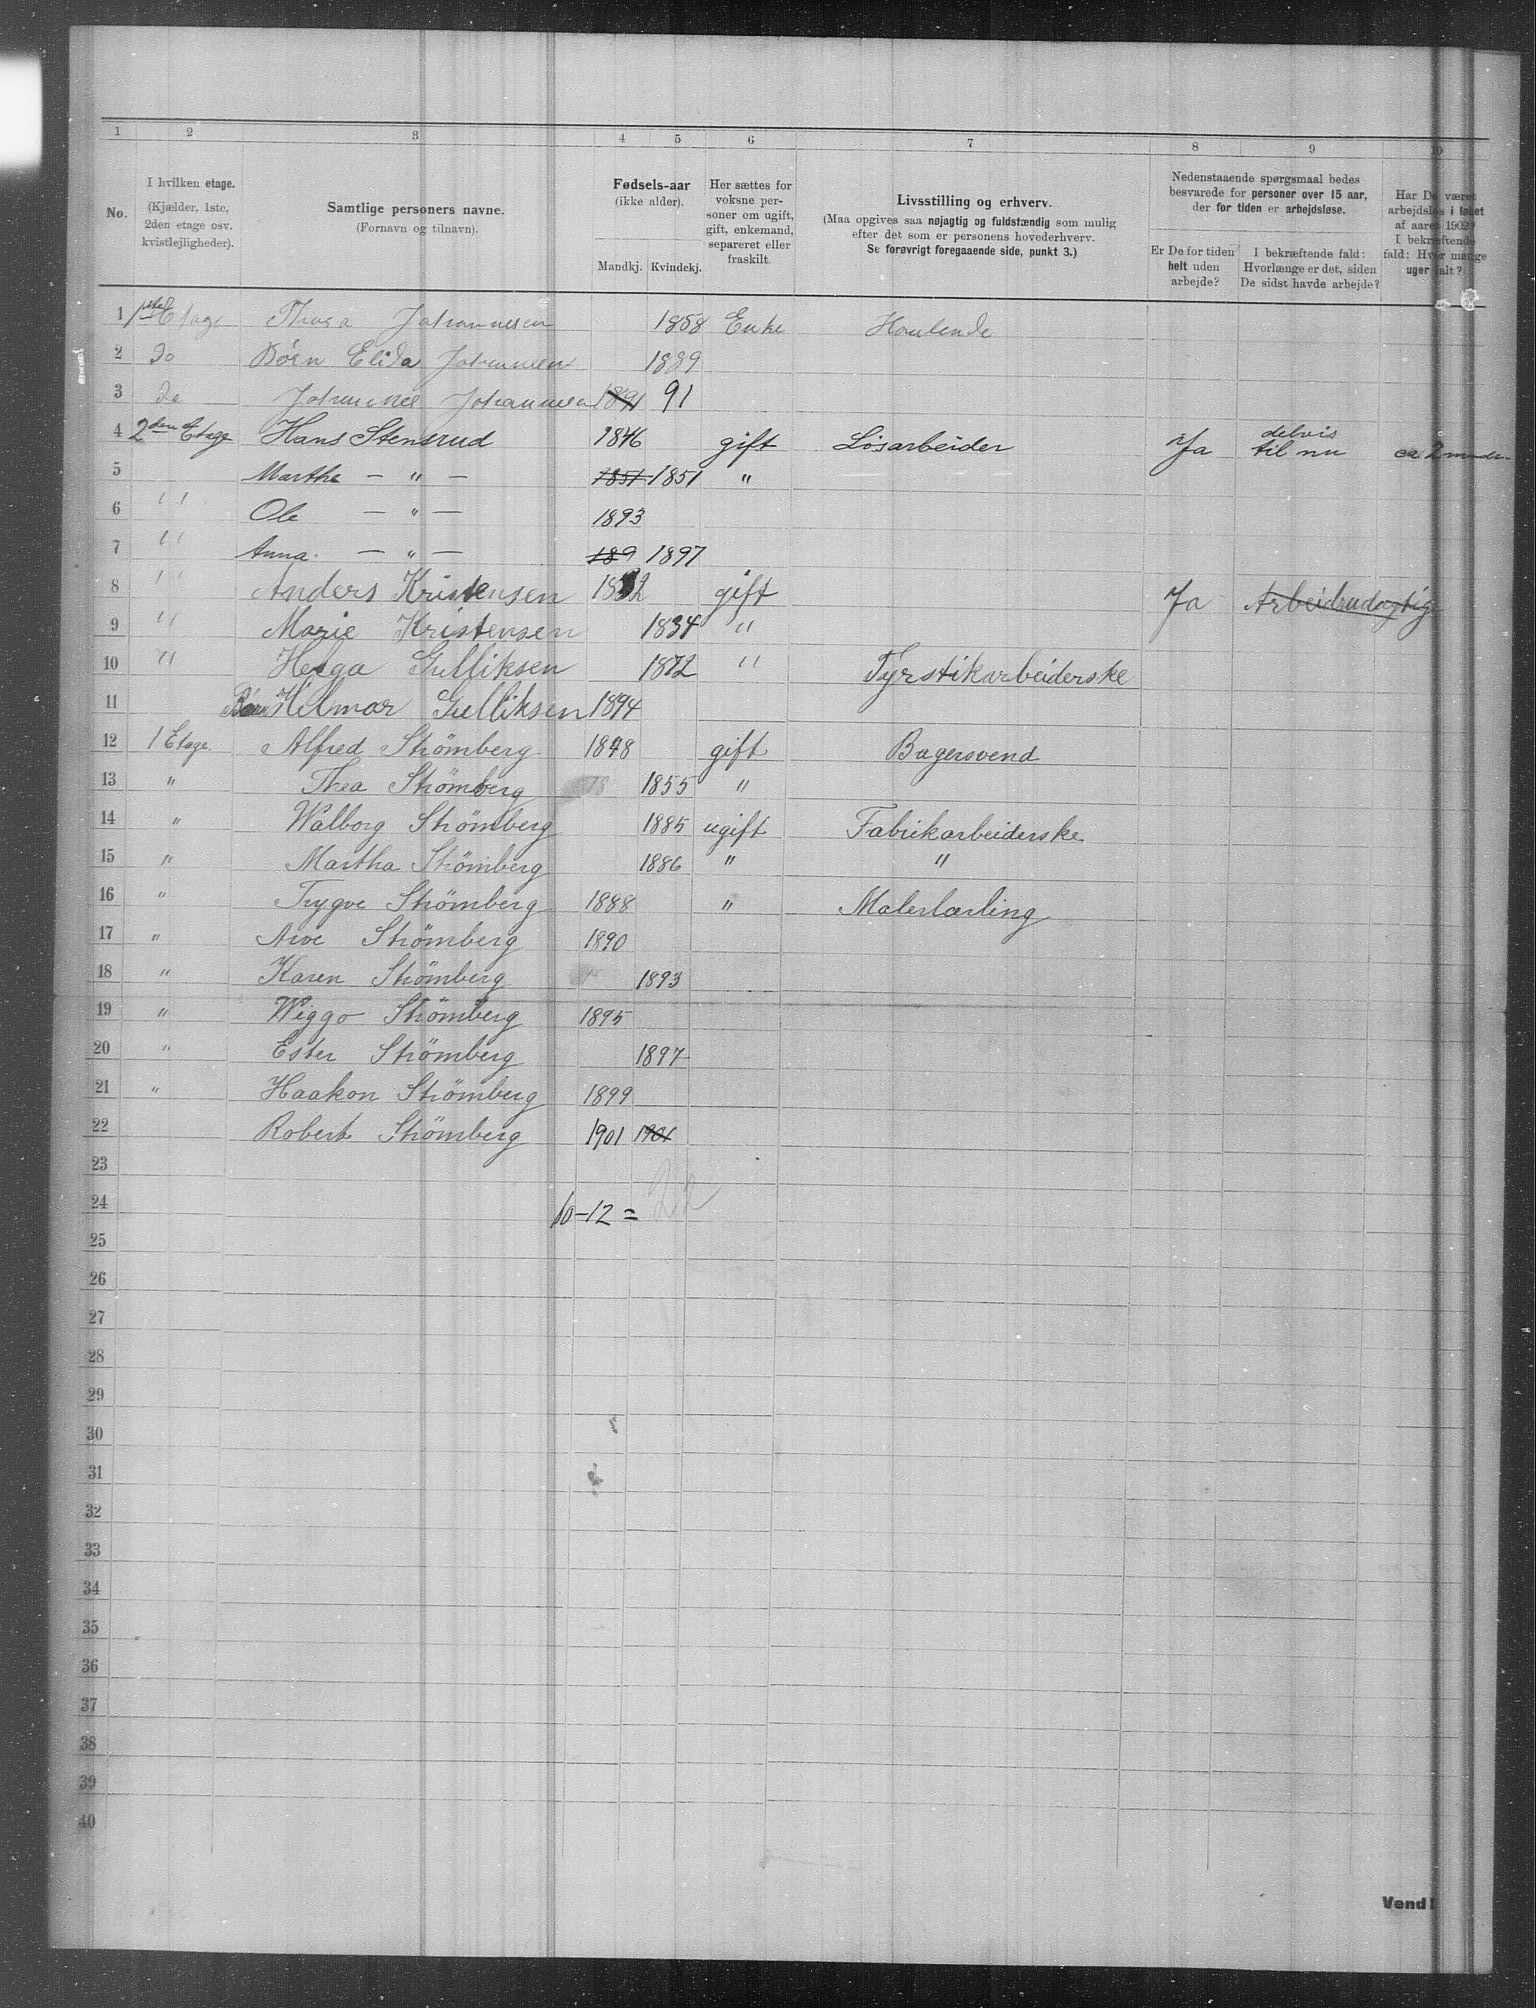 1 2 3 4 5 6 7 8 9 10
No.
I hvilken etage.
(Kjælder, 1ste,
2den etage osv.
kvistlejligheder).
Samtlige personers navne.
(Fornavn og tilnavn).
Fødsels-aar
(ikke alder).
Mandkj. Kvindekj.
Her sættes for
voksne per-
soner om ugift,
gift, enkemand,
separeret eller
fraskilt.
Livsstilling og erhverv.
(Maa opgives saa nøjagtig og fuldstændig som mulig
efter det som er personens hovederhverv.
Se forøvrigt foregaaende side, punkt 3.)
Nedenstaaende spørgsmaal bedes
besvarede for personer over 15 aar,
der for tiden er arbejdsløse.
Er De for tiden
helt uden
arbejde?
I bekræftende fald:
Hvorlænge er det, siden
De sidst havde arbejde?
Har De været
arbejdsløs i løbet
af aaret 1902?
I bekræftende
fald: Hvor mange
uger ialt?
1 1ste Etage Thora Johannesen 1858 Enke
2 do Børn Elida Johannesen 1889
3 do Johannes Johannesen 1891 91
4 2den Etage Hans Stensrud 1846 gift Løsarbeider Ja delvis til nu ca 2
5 Martha — " — 1851 1851 "
6 " Ole — " — 1893
7 " Anna — " — 189 1897
8 " Anders Kristensen 1832 gift Ja Arbeidsudygtig
9 " Marie Kristensen 1834 "
10 " Helga Gulliksen 1872 " Fyrstikarbeiderske
11 Børn Hilmar Gulliksen 1894
12 1 Etage Alfred Strömberg 1848 gift Bagersvend
13 " Thea Strömberg 1855 "
14 " Walborg Strömberg 1885 ugift Fabrikarbeiderske
15 " Martha Strömberg 1886 " "
16 " Trygve Strömberg 1888 " Malerlærling
17 " Arve Strömberg 1890
18 " Karen Strömberg 1893
19 " Wiggo Strömberg 1895
20 " Ester Strömberg 1897
21 " Haakon Strömberg 1899
22 Robert Strömberg 1901 1901
23
24 10-12 = 22
25
26
27
28
29
30
31
32
33
34
35
36
37
38
39
40
Vend!